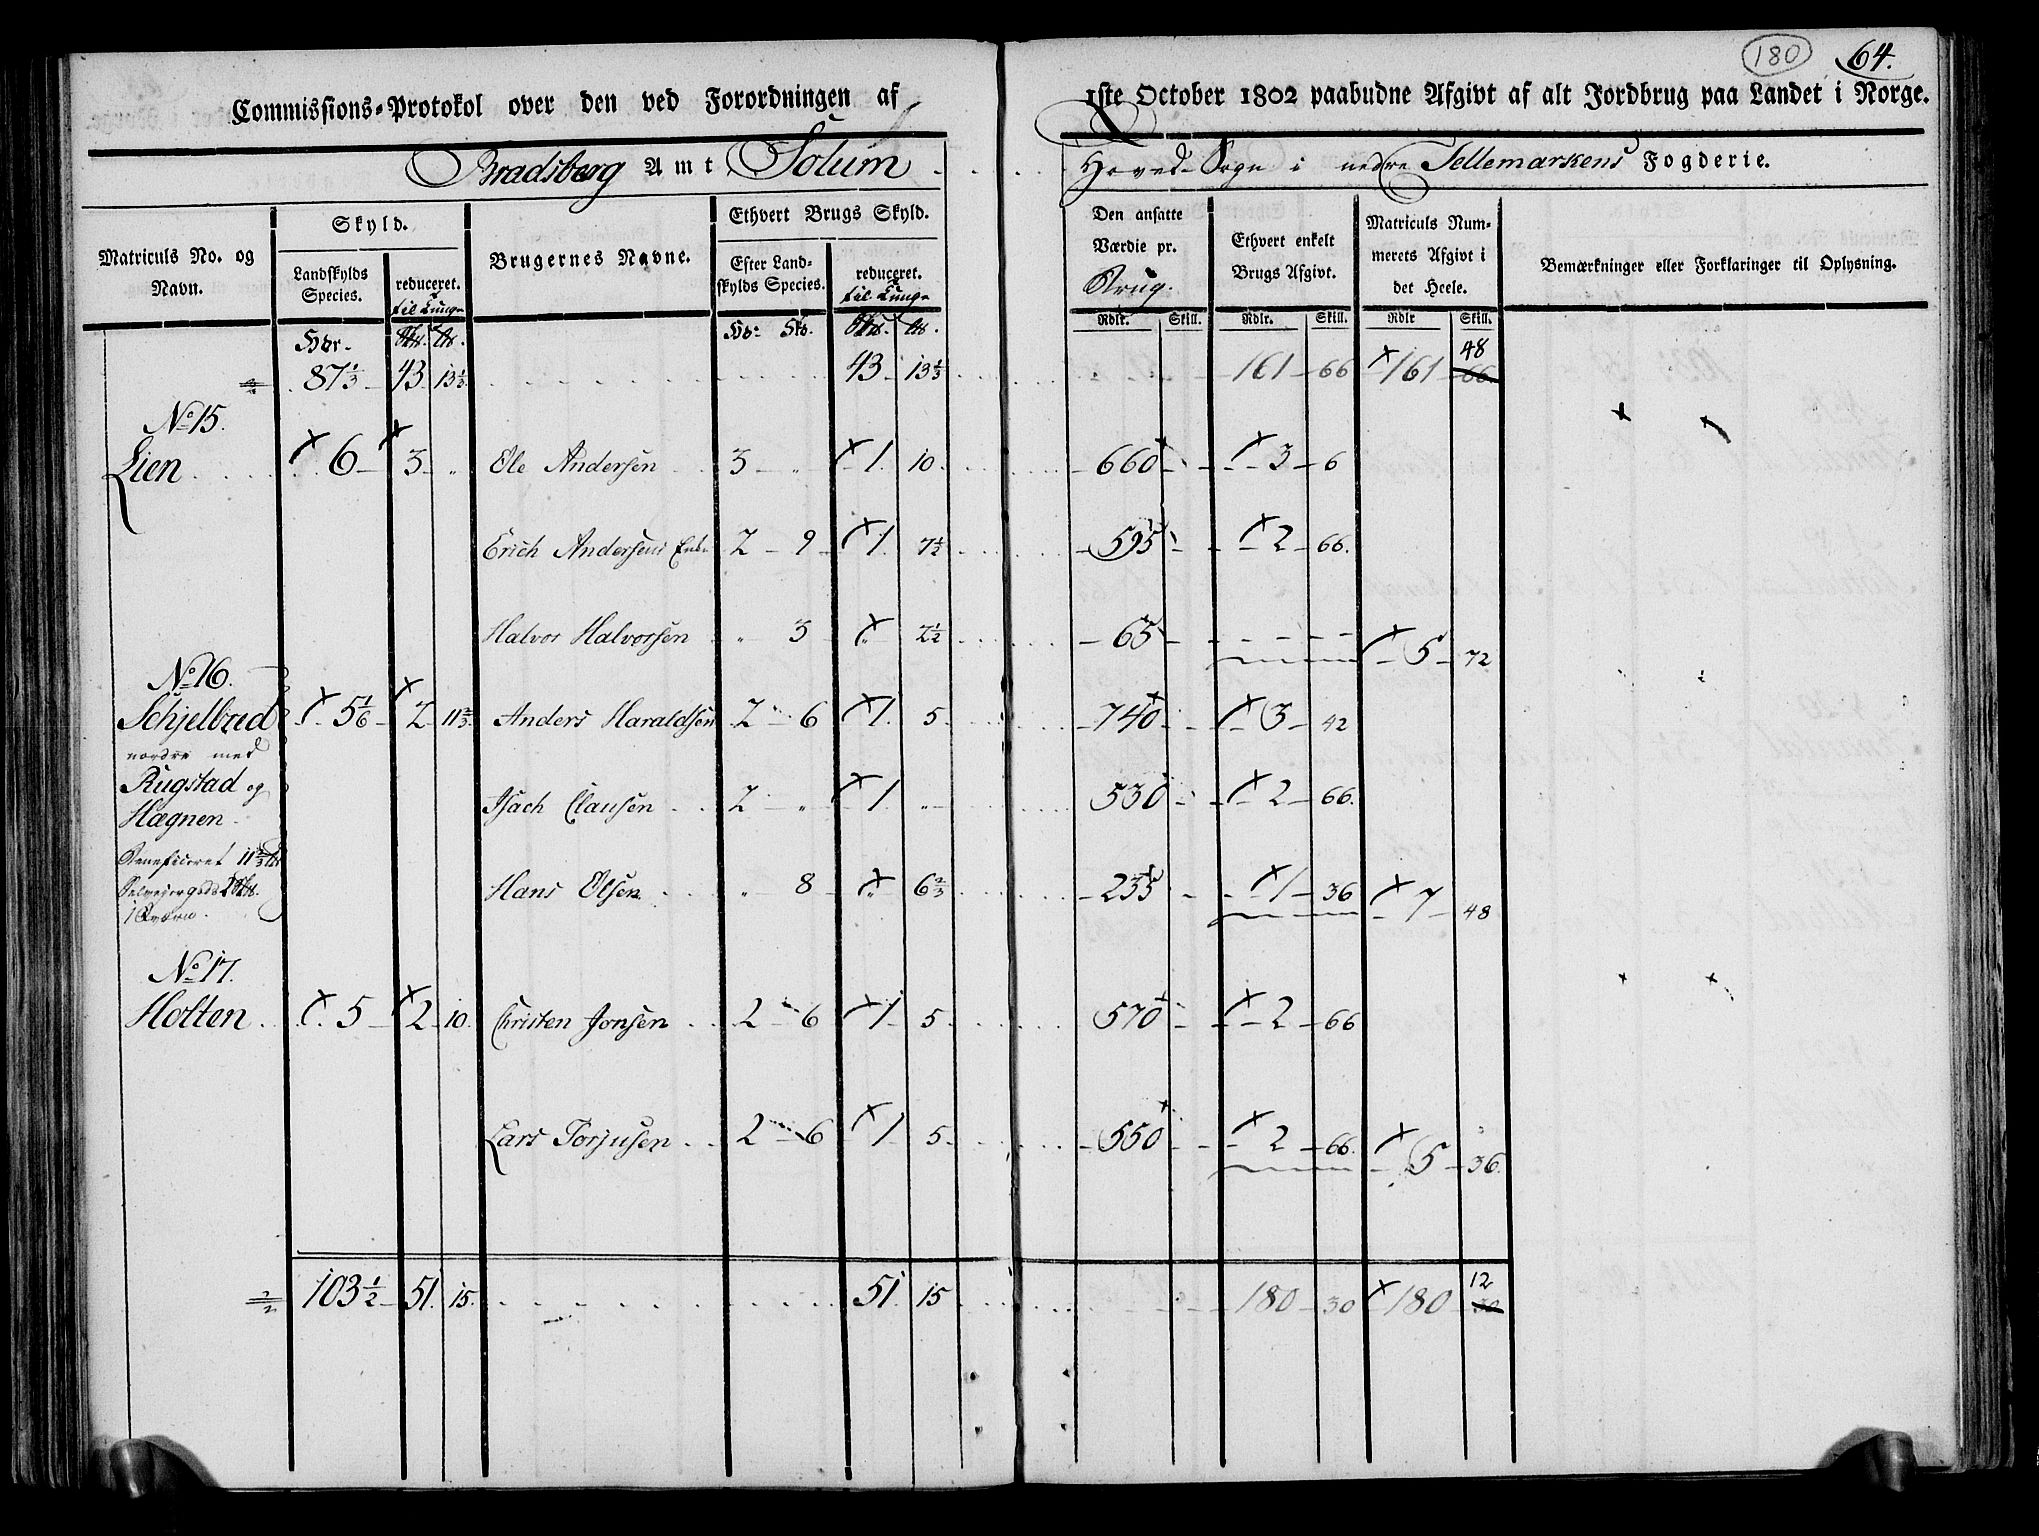 180 64.
Commissions-Protokol over den ved Forordningen af 1ste October 1802 paabudne Afgivt af alt Jordbrug paa Landet i Norge.
Bradsberg Amt Solum Hoved-Sogn i nedre Tellemarkens Fogderie.
Matriculs No. og Navn.
Skyld.
Landskylds Species.
reduceret. til Tunge
Brugernes Navne.
Ethvert Brugs Skyld.
Efter Landskylds Species.
reduceret. til Tunge
Den ansatte Værdie pr. Brug.
Ethvert enkelt Brugs Afgivt.
Matriculs Nummerets Afgivt i det Heele.
Bemærkninger eller Forklaringer til Oplysning.
Rdlr. Skill. Rdlr. Skill. Rdlr Skill.
87 1/3 43 13 1/3 43 13 1/3 161 66 161 48 66
No 15.
Lien 6 3 " Ole Andersen 3 " 1 10 660 3 6
Erich Andersens Enke 2 9 1 7 1/2 595 2 66.
Halvor Halvorsen " 3 " 2 1/2 65 5 72
No 16.
Schjelbred 5 5/6 2 11 2/3 Anders Haraldsen 2 6 1 5 740 3 42
nordre med
Rugstad og Isach Clausen 2 " 1 " 530 2 66.
Hægnen
Beneficeret 11 2/3
Hans Olsen " 8 " 6 2/3 235 1 36 7 48
No 17.
Holten 5 2 10 Christen Jonsen 2 6 1 5 570 2 66
Lars Torjusen 2 6 1 5 550 2 66. 5 36.
103 1/2 51. 15. 51. 15 180 30 180 12 30